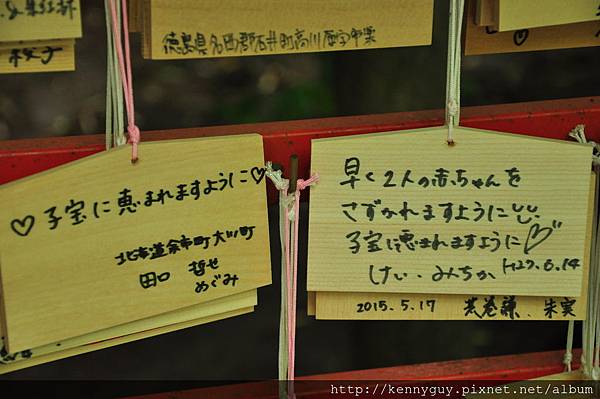 徳島県名西郡石井町高川原字中薬
♡子宝に恵まれますように♡
北海道余市町大川町
田口 哲せ
めぐみ
早く2人の赤ちゃんを
さずかれますように
子宝に恵まれますように♡
けい・みちか H27.6.14
2015.5.17
http://kennyguy.pixnet.net/album